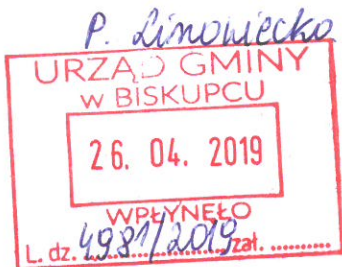 P. Limowiecko
URZĄD GMINY
w BISKUPCU
26. 04. 2019
WPŁYNĘŁO
L. dz. 4981/2019 zał. ...........